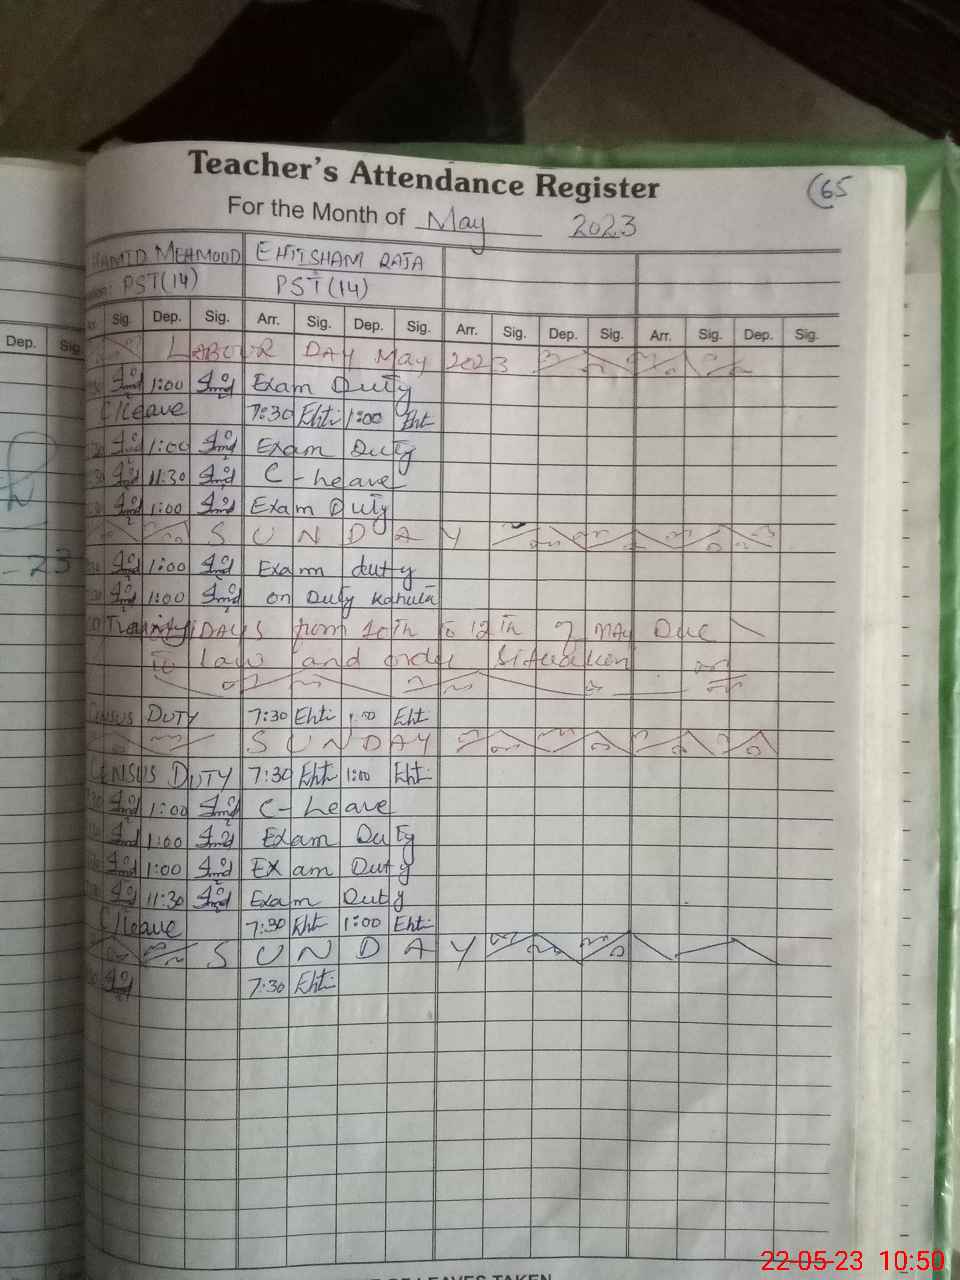 Teacher's Attendance Register
(65
For the Month of May 2023
HAMID MEHMOOD EHITSHAM RAJA
PST(14) PST(14)
Dep. Sig. Arr. Sig. Dep. Sig. Arr. Sig. Dep. Sig. Arr. Sig. Dep. Sig. Arr. Sig. Dep. Sig.
LABOUR DAY May 2023
1:00 Exam Duty
C/Leave 7:30 Ehti 1:00 Eht
1:00 Exam Duty
11:30 C-Leave
1:00 Exam Duty
SUNDAY
-23 1:00 Exam duty
1:00 on Duty Kahuta
DAYS from 10th To 12th of MAY Due
To Law and order Situation
CENSUS DUTY 7:30 Ehti 1:00 Eht
SUNDAY
CENSUS DUTY 7:30 Ehti 1:00 Eht
1:00 C-Leave
1:00 Exam Duty
1:00 Exam Duty
11:30 Exam Duty
C/Leave 7:30 Eht 1:00 Eht
SUNDAY
7:30 Ehti
OF LEAVES TAKEN
22-05-23 10:50